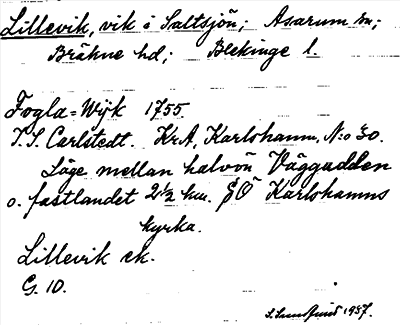 Lillevik, vik i Saltsjön; Asarum sn;
Bräkne hd; Blekinge l.
Fogla=Wijk 1755.
T. S. Carlstedt. KrA, Karlshamn, N:o 30.
Läge mellan halvön Väggudden
o. fastlandet 2½ km. SÖ Karlshamns
kyrka.
Lillevik ek.
G. 10.
S. Sundfjud 1937.